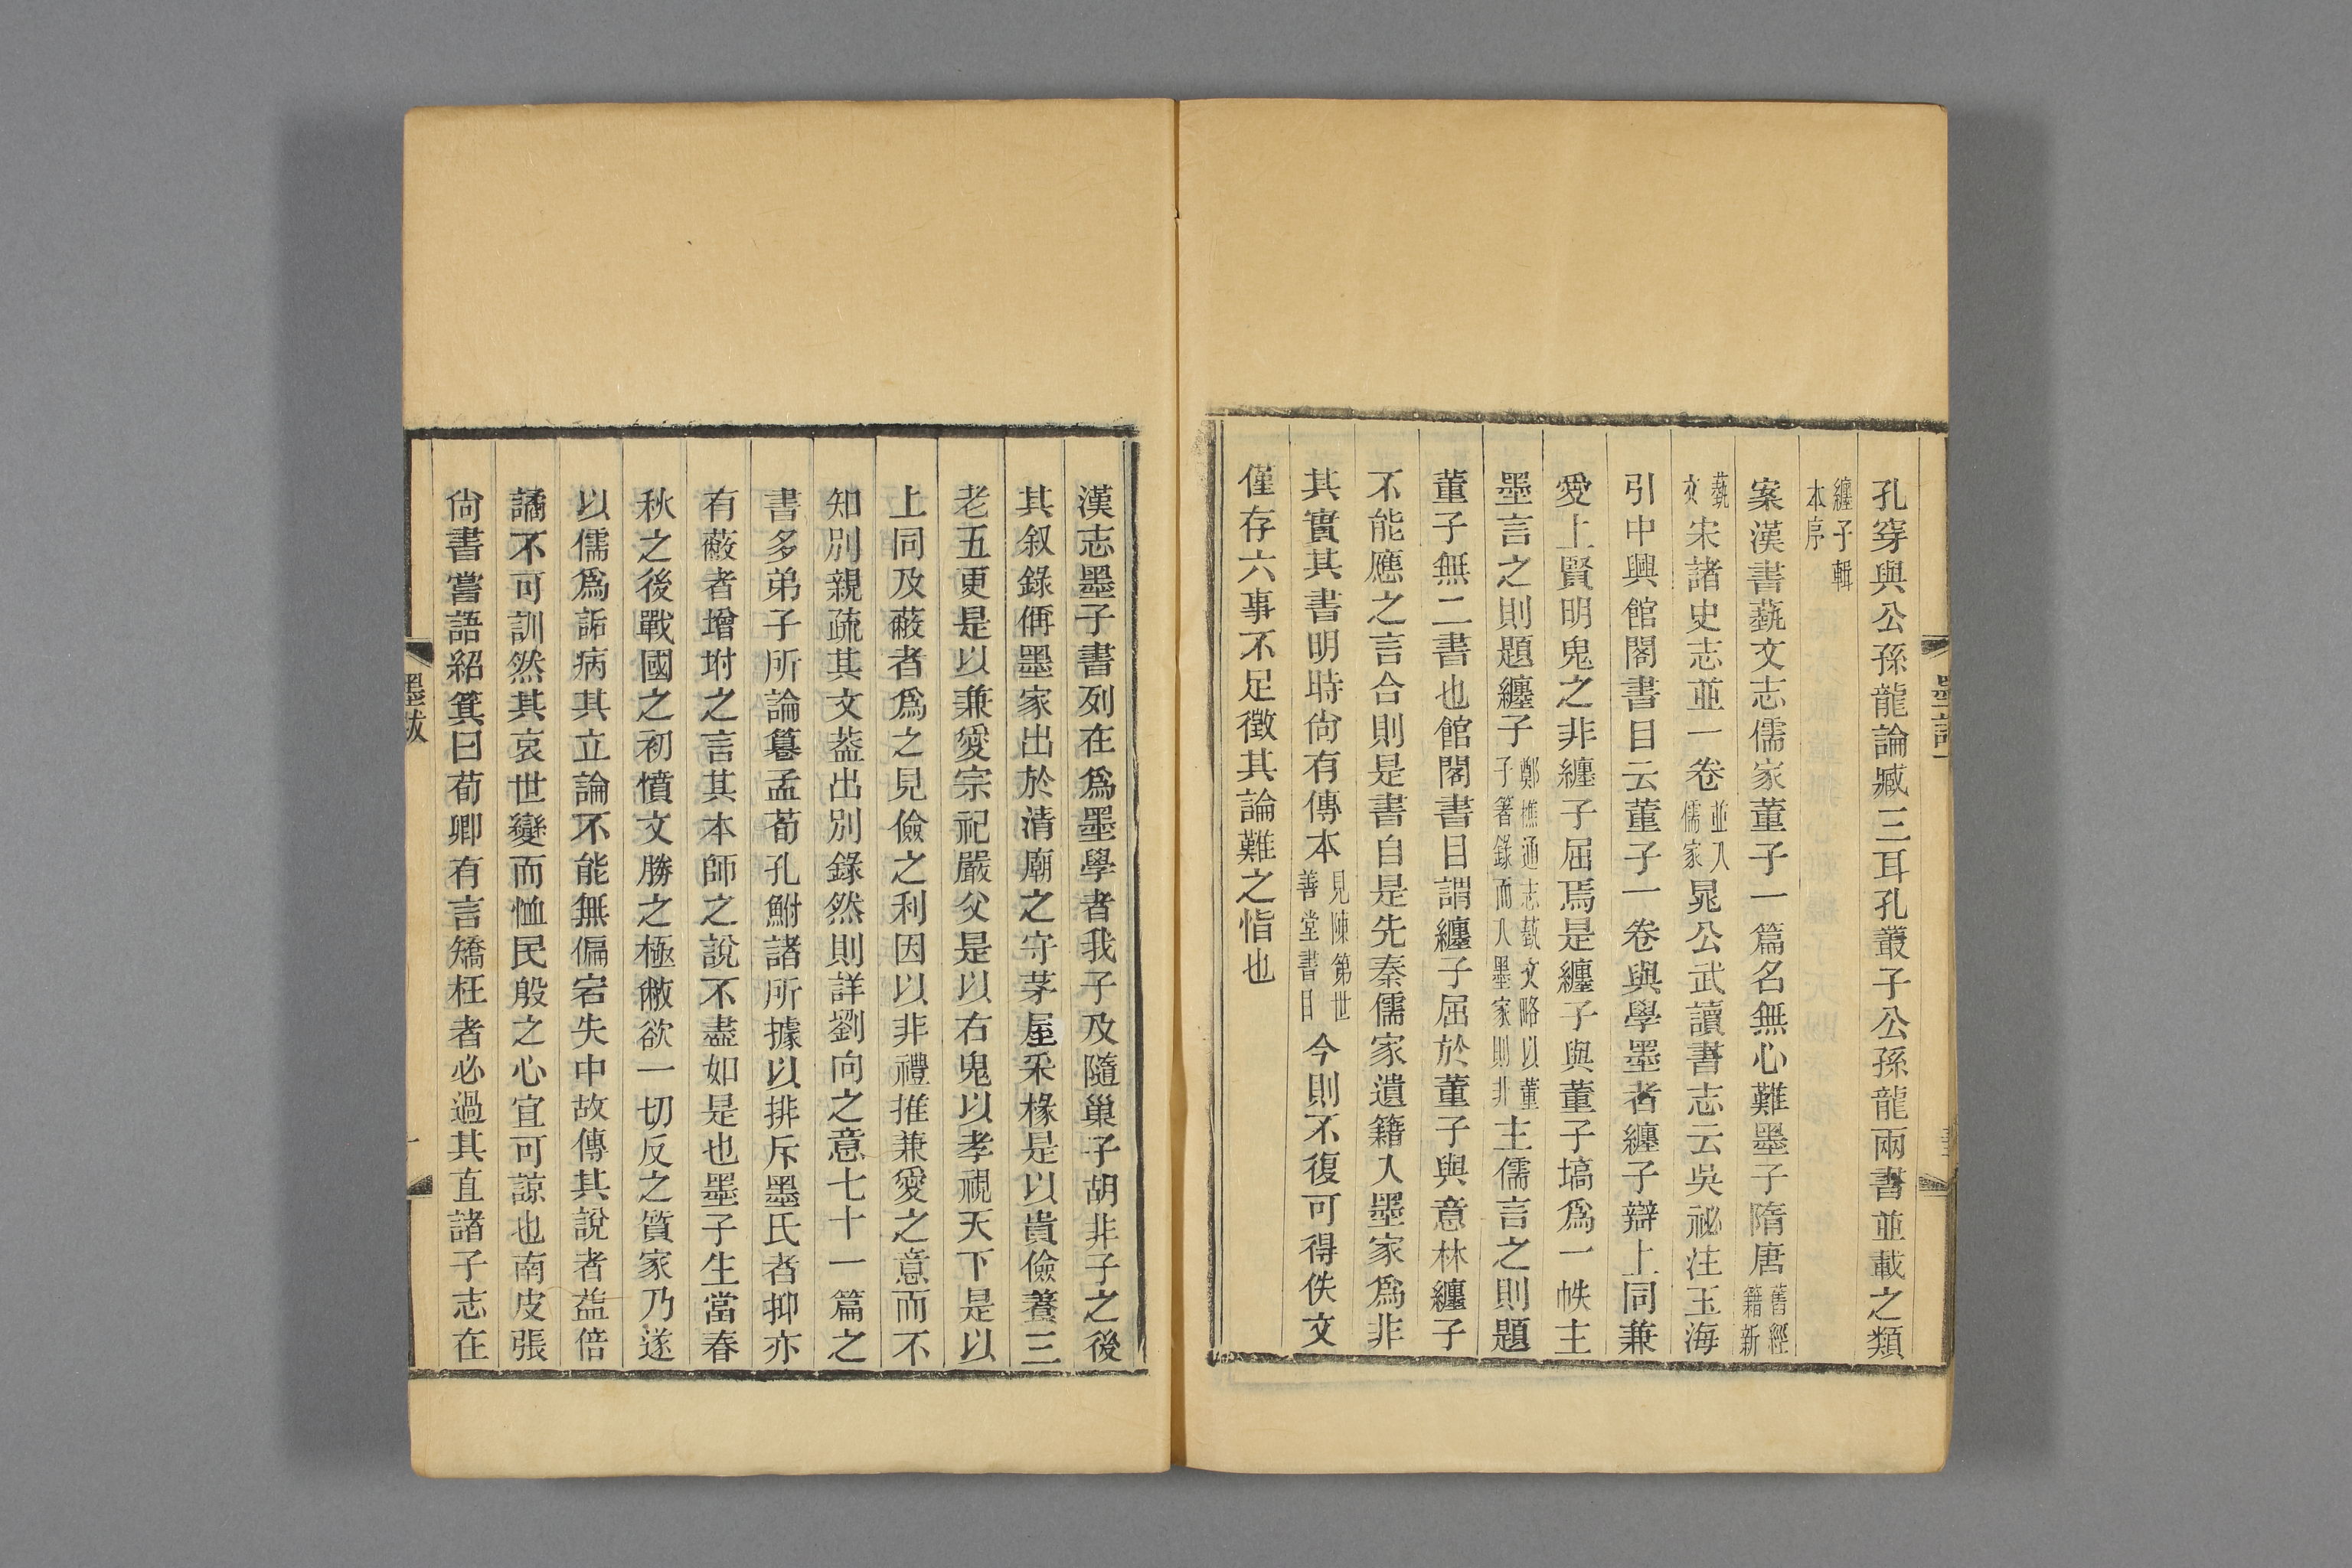 孔穿與公孫龍論臧三耳孔叢子公孫龍兩書並載之類
纏子輯
本序
案漢書蓺文志儒家董子一篇名無心難墨子隋唐舊經籍新
蓺文宋諸史志並一卷並入儒家晁公武讀書志云吳祕注玉海
引中興館閣書目云董子一卷與學墨者纏子辯上同兼
愛上賢明鬼之非纏子屈焉是纏子與董子塙爲一帙主
墨言之則題纏子鄭樵通志蓺文略以董子箸錄而入墨家則非主儒言之則題
董子無二書也館閣書目謂纏子屈於董子與意林纏子
不能應之言合則是書自是先秦儒家遺籍入墨家爲非
其實其書明時尚有傳本見陳第世善堂書目今則不復可得佚文
僅存六事不足徵其論難之恉也
漢志墨子書列在爲墨學者我子及隨巢子胡非子之後
其叙錄偁墨家出於清廟之守茅屋采椽是以貴儉養三
老五更是以兼愛宗祀嚴父是以右鬼以孝視天下是以
上同及蔽者爲之見儉之利因以非禮推兼愛之意而不
知別親疏其文葢出別錄然則詳劉向之意七十一篇之
書多弟子所論篹孟荀孔鮒諸所據以排斥墨氏者抑亦
有蔽者增坿之言其本師之說不盡如是也墨子生當春
秋之後戰國之初憤文勝之極敝欲一切反之質家乃遂
以儒爲詬病其立論不能無偏宕失中故傳其說者益倍
譎不可訓然其哀世變而恤民殷之心宜可諒也南皮張
尚書嘗語紹箕曰荀卿有言矯枉者必過其直諸子志在
墨跋
一